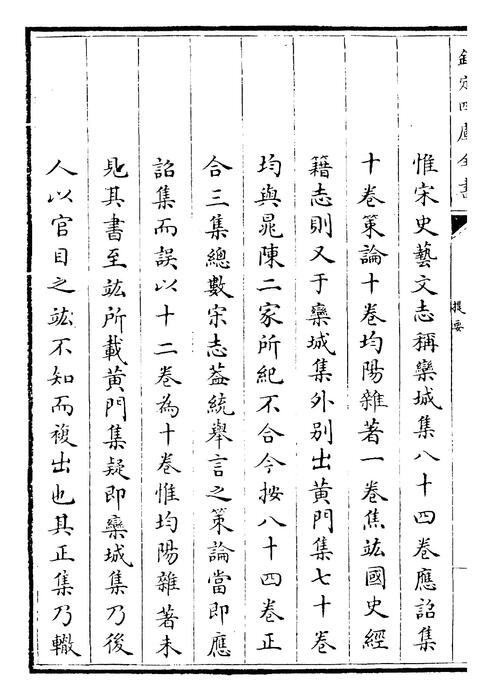 欽定四庫全書
提要
惟宋史藝文志稱欒城集八十四卷應詔集
十卷策論十卷均陽雜著一卷焦竑國史經
籍志則又于欒城集外别出黄門集七十卷
均與晁陳二家所紀不合今按八十四卷正
合三集總數宋志葢統舉言之策論當即應
詔集而誤以十二卷為十卷惟均陽雜著未
見其書至竑所載黄門集疑即欒城集乃後
人以官目之竑不知而複出也其正集乃轍